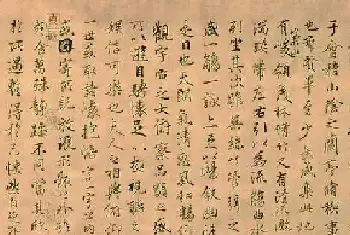 于會稽山陰之蘭亭脩稧事
也羣賢畢至少長咸集此地
有崇山峻領茂林脩竹又有清流激
湍暎帶左右引以為流觴曲水
列坐其次雖無絲竹管弦之
盛一觴一詠亦足以暢敘幽情
是日也天朗氣清惠風和暢仰
觀宇宙之大俯察品類之盛
所以遊目騁懷足以極視聽之
娛信可樂也夫人之相與俯仰
一世或取諸懷抱悟言一室之內
或因寄所託放浪形骸之外雖
趣舍萬殊靜躁不同當其欣
於所遇蹔得於己快然自足